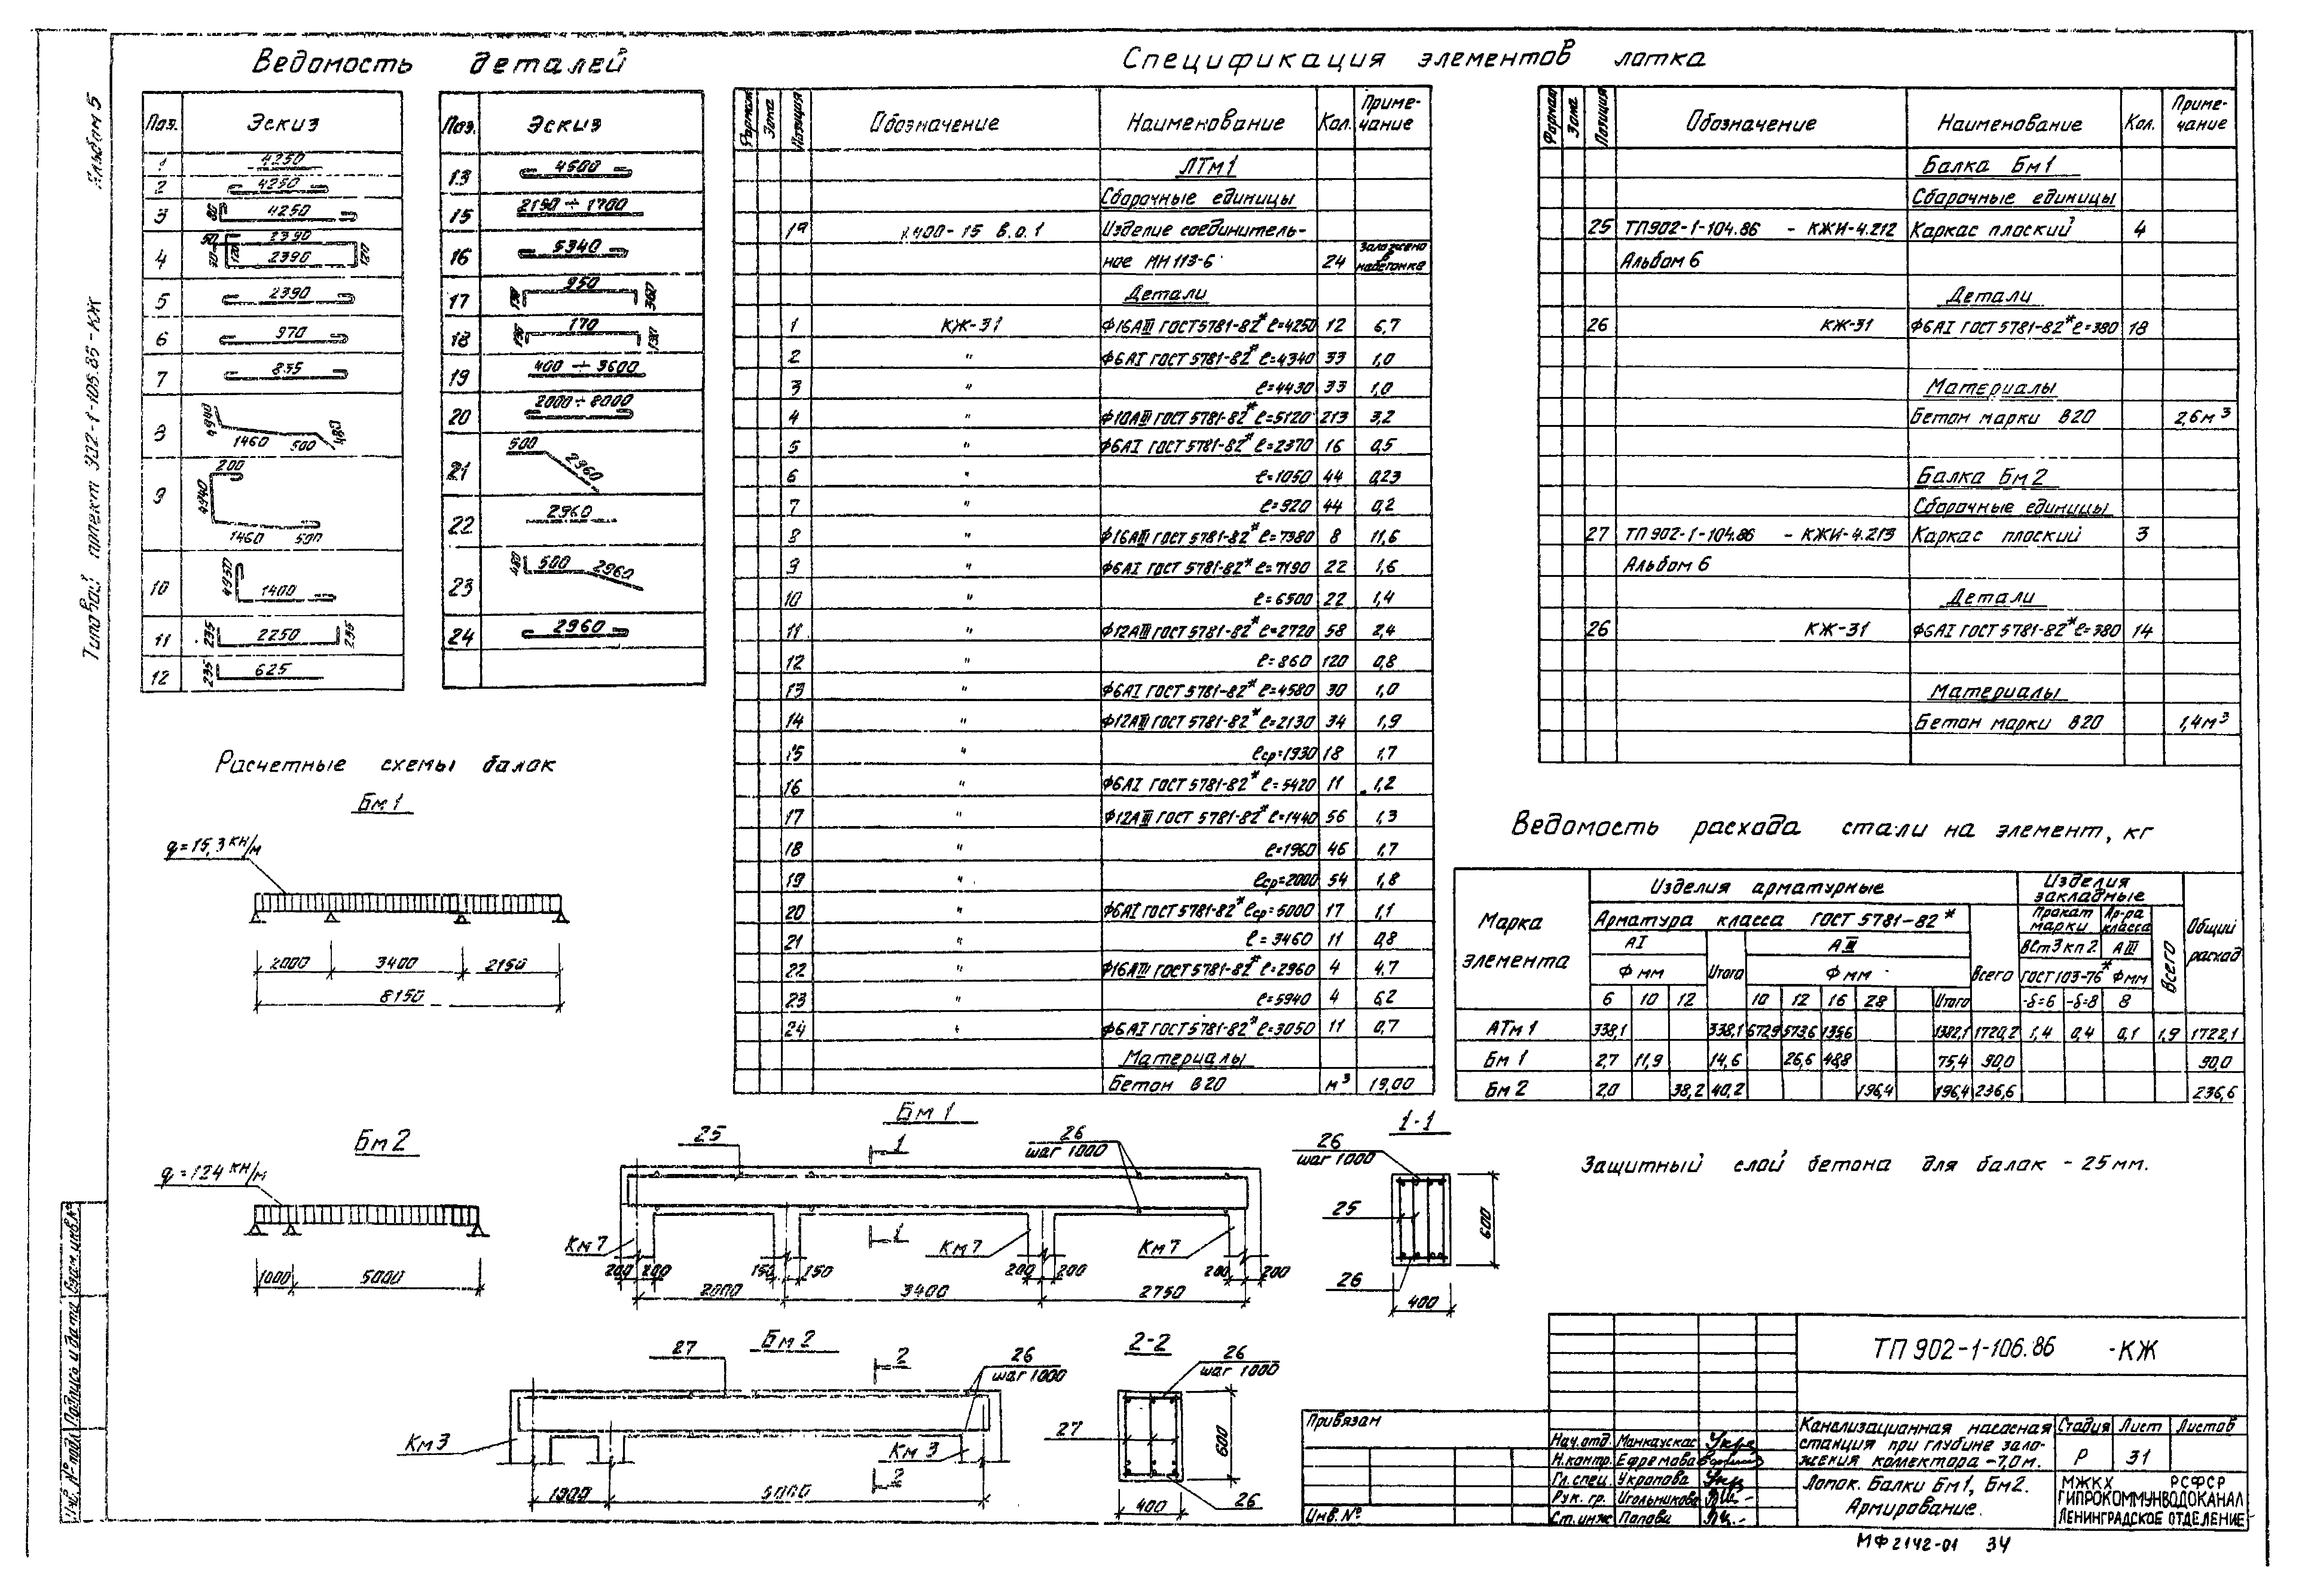 Ведомость деталей
Поз. Эскиз
1 4250
2 4250
3 80 4250
4 50 2390 120 2390 120
5 2390
6 970
7 835
8 4940 1460 500 480
9 200 4940 1460 500
10 4950 1400
11 235 2250 235
12 235 625
Поз. Эскиз
13 4500
15 2150 ÷ 1700
16 5340
17 950 360
18 170 130
19 400 ÷ 3600
20 2000 ÷ 8000
21 500 2960
22 2960
23 480 500 2960
24 2960
Спецификация элементов лотка
Формат Зона Позиция Обозначение Наименование Кол. Примечание
ЛТм1
Сборочные единицы
1а 1.400-15 в.0.1 Изделие соединитель-
ное МН 113-6 24 Заложено в набетонке
Детали
1 КЖ-31 Ф16АIII ГОСТ 5781-82* ℓ=4250 12 6,7
2 " Ф6АI ГОСТ 5781-82* ℓ=4340 33 1,0
3 " ℓ=4430 33 1,0
4 " Ф10АIII ГОСТ 5781-82* ℓ=5120 213 3,2
5 " Ф6АI ГОСТ 5781-82* ℓ=2370 16 0,5
6 " ℓ=1050 44 0,23
7 " ℓ=920 44 0,2
8 " Ф16АIII ГОСТ 5781-82* ℓ=7380 8 11,6
9 " Ф6АI ГОСТ 5781-82* ℓ=7190 22 1,6
10 " ℓ=6500 22 1,4
11 " Ф12АIII ГОСТ 5781-82* ℓ=2720 58 2,4
12 " ℓ=860 120 0,8
13 " Ф6АI ГОСТ 5781-82* ℓ=4580 30 1,0
14 " Ф12АIII ГОСТ 5781-82* ℓ=2130 34 1,9
15 " ℓср=1930 18 1,7
16 " Ф6АI ГОСТ 5781-82* ℓ=5420 11 1,2
17 " Ф12АIII ГОСТ 5781-82* ℓ=1440 56 1,3
18 " ℓ=1960 46 1,7
19 " ℓср=2000 54 1,8
20 " Ф6АI ГОСТ 5781-82* ℓср=5000 17 1,1
21 " ℓ=3460 11 0,8
22 " Ф16АIII ГОСТ 5781-82* ℓ=2960 4 4,7
23 " ℓ=5940 4 6,2
24 " Ф6АI ГОСТ 5781-82* ℓ=3050 11 0,7
Материалы
Бетон В20 м³ 19,00
Формат Зона Позиция Обозначение Наименование Кол. Примечание
Балка Бм1
Сборочные единицы
25 ТП902-1-104.86 - КЖИ-4.212 Каркас плоский 4
Альбом 6
Детали
26 КЖ-31 Ф6АI ГОСТ 5781-82* ℓ=380 18
Материалы
Бетон марки В20 2,6м³
Балка Бм2
Сборочные единицы
27 ТП902-1-104.86 - КЖИ-4.213 Каркас плоский 3
Альбом 6
Детали
26 КЖ-31 Ф6АI ГОСТ 5781-82* ℓ=380 14
Материалы
Бетон марки В20 1,4м³
Ведомость расхода стали на элемент, кг
Марка элемента
Изделия арматурные
Изделия закладные
Общий расход
Арматура класса ГОСТ 5781-82*
Прокат марки Ар-ра класса
АI АIII Всего ВСт3кп2 АIII Всего
Ф мм Итого Ф мм ГОСТ 103-76* Ф мм
6 10 12 10 12 16 28 Итого -δ=6 -δ=8 8
ЛТм1 338,1 338,1 672,9 573,6 135,6 1382,1 1720,2 1,4 0,4 0,1 1,9 1722,1
Бм1 2,7 11,9 14,6 26,6 48,8 75,4 90,0 90,0
Бм2 2,0 38,2 40,2 196,4 196,4 236,6 236,6
Защитный слой бетона для балок - 25мм.
Расчетные схемы балок
Бм1
q=15,3 кН/м
2000 3400 2750
8150
Бм2
q=124 кН/м
1000 5000
Бм1
25 1 26 шаг 1000
Км7 1 Км7 Км7
200 200 150 150 200 200 200 200
2000 3400 2750
1-1
26
шаг 1000
25
600
26
400
Бм2
27 2 26 шаг 1000
Км3 Км3
2
1000 5000
2-2
26
шаг 1000
27
600
26
400
Типовой проект 902-1-106.86-КЖ Альбом 5
Инв. № подл. Подпись и дата Взам.инв.№
Привязан
Инв.№
ТП 902-1-106.86 -КЖ
Нач.отд.
Н.контр. Ефремова
Гл.спец. Укропова
Рук. гр. Игольникова
Ст.инж. Попова
Канализационная насосная
станция при глубине зало-
жения коллектора -7,0м.
Стадия Лист Листов
Р 31
Лоток. Балки Бм1, Бм2.
Армирование.
МЖКХ РСФСР
ГИПРОКОММУНВОДОКАНАЛ
ЛЕНИНГРАДСКОЕ ОТДЕЛЕНИЕ
МФ2142-01 34